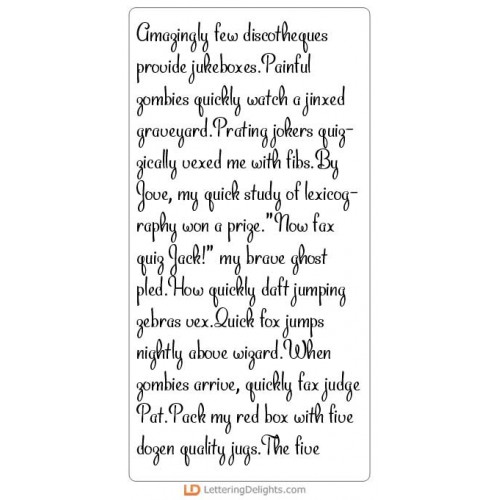 Amazingly few discotheques
provide jukeboxes.Painful
zombies quickly watch a jinxed
graveyard.Prating jokers quiz-
zically vexed me with fibs.By
Jove, my quick study of lexicog-
raphy won a prize."Now fax
quiz Jack!" my brave ghost
pled.How quickly daft jumping
zebras vex.Quick fox jumps
nightly above wizard.When
zombies arrive, quickly fax judge
Pat.Pack my red box with five
dozen quality jugs.The five
LD LetteringDelights.com